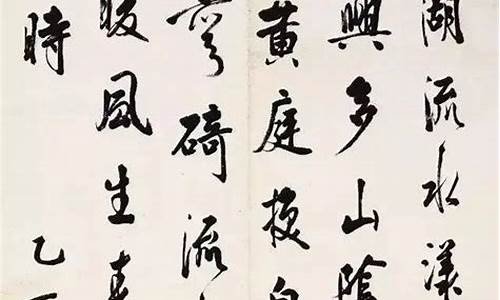 湖流水漾
興多山陰
黃庭換白
碕流
暖風生春
時 乙